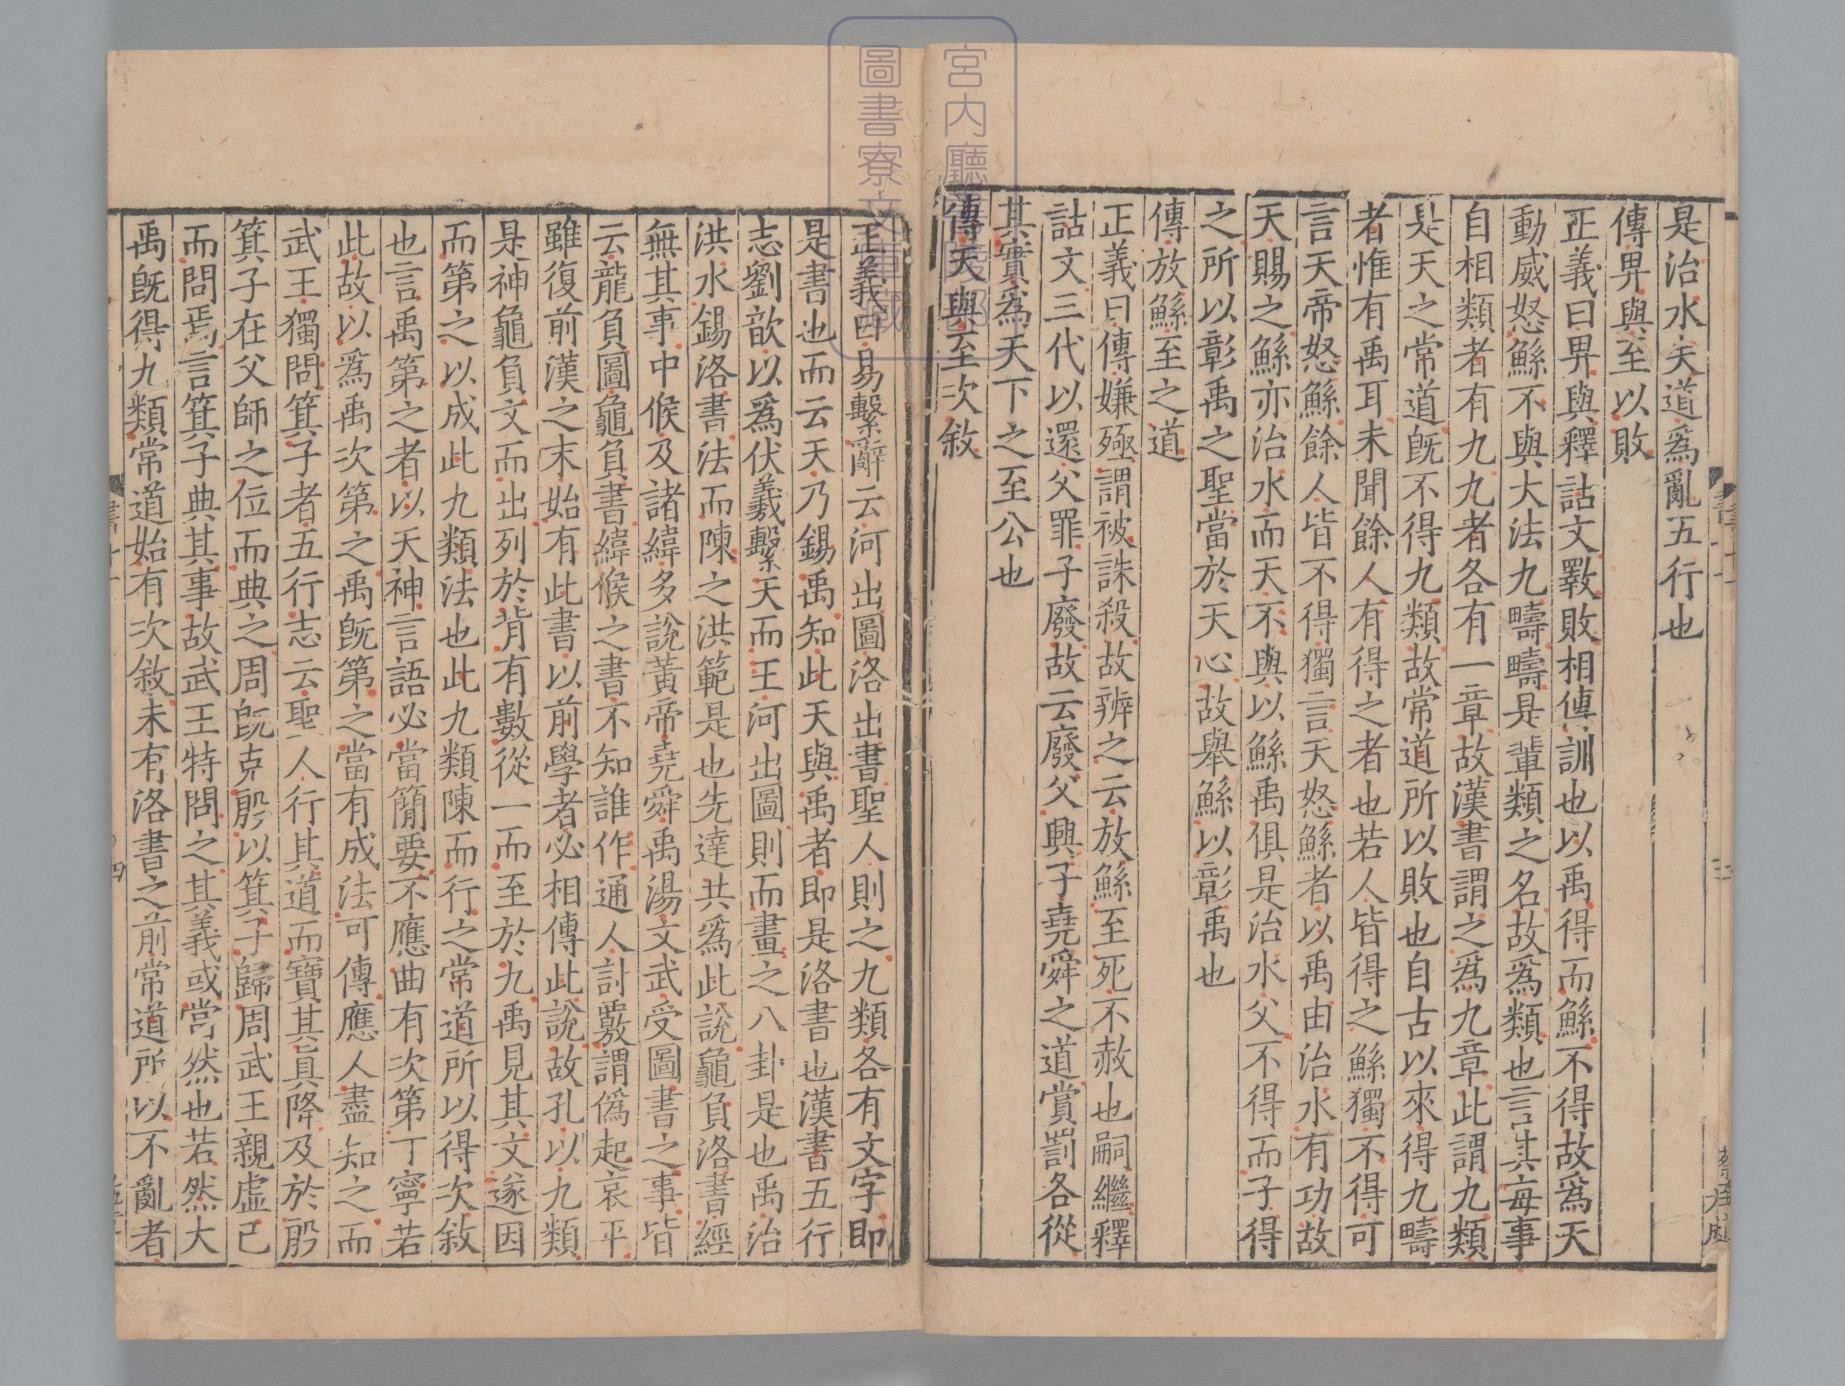 是治水失道爲亂五行也
傳畀與至以敗
正義曰畀與釋詁文斁敗相傳訓也以禹得而鯀不得故爲天
動威怒鯀不與大法九疇疇是輩類之名故爲類也言其每事
自相類者有九九者各有一章故漢書謂之爲九章此謂九類
是天之常道旣不得九類故常道所以敗也自古以來得九疇
者惟有禹耳未聞餘人有得之者也若人皆得之鯀獨不得可
言天帝怒鯀餘人皆不得獨言天怒鯀者以禹由治水有功故
天賜之鯀亦治水而天不與以鯀禹俱是治水父不得而子得
之所以彰禹之聖當於天心故舉鯀以彰禹也
傳放鯀至之道
正義曰傳嫌殛謂被誅殺故辨之云放鯀至死不赦也嗣繼釋
詁文三代以還父罪子廢故云廢父興子堯舜之道賞罰各從
其實爲天下之至公也
傳天與至次敘
正義曰易繫辭云河出圖洛出書聖人則之九類各有文字即
是書也而云天乃錫禹知此天與禹者即是洛書也漢書五行
志劉歆以爲伏羲繫天而王河出圖則而畫之八卦是也禹治
洪水錫洛書法而陳之洪範是也先達共爲此說龜負洛書經
無其事中候及諸緯多說黃帝堯舜禹湯文武受圖書之事皆
云龍負圖龜負書緯候之書不知誰作通人討覈謂僞起哀平
雖復前漢之末始有此書以前學者必相傳此說故孔以九類
是神龜負文而出列於背有數從一而至於九禹見其文遂因
而第之以成此九類法也此九類陳而行之常道所以得次敘
也言禹第之者以天神言語必當簡要不應曲有次第丁寧若
此故以爲禹次第之禹旣第之當有成法可傳應人盡知之而
武王獨問箕子者五行志云聖人行其道而寶其眞降及於殷
箕子在父師之位而典之周旣克殷以箕子歸周武王親虛己
而問焉言箕子典其事故武王特問之其義或當然也若然大
禹旣得九類常道始有次敘未有洛書之前常道所以不亂者
書十一
三
書十一
四
宮内廳
圖書寮文庫